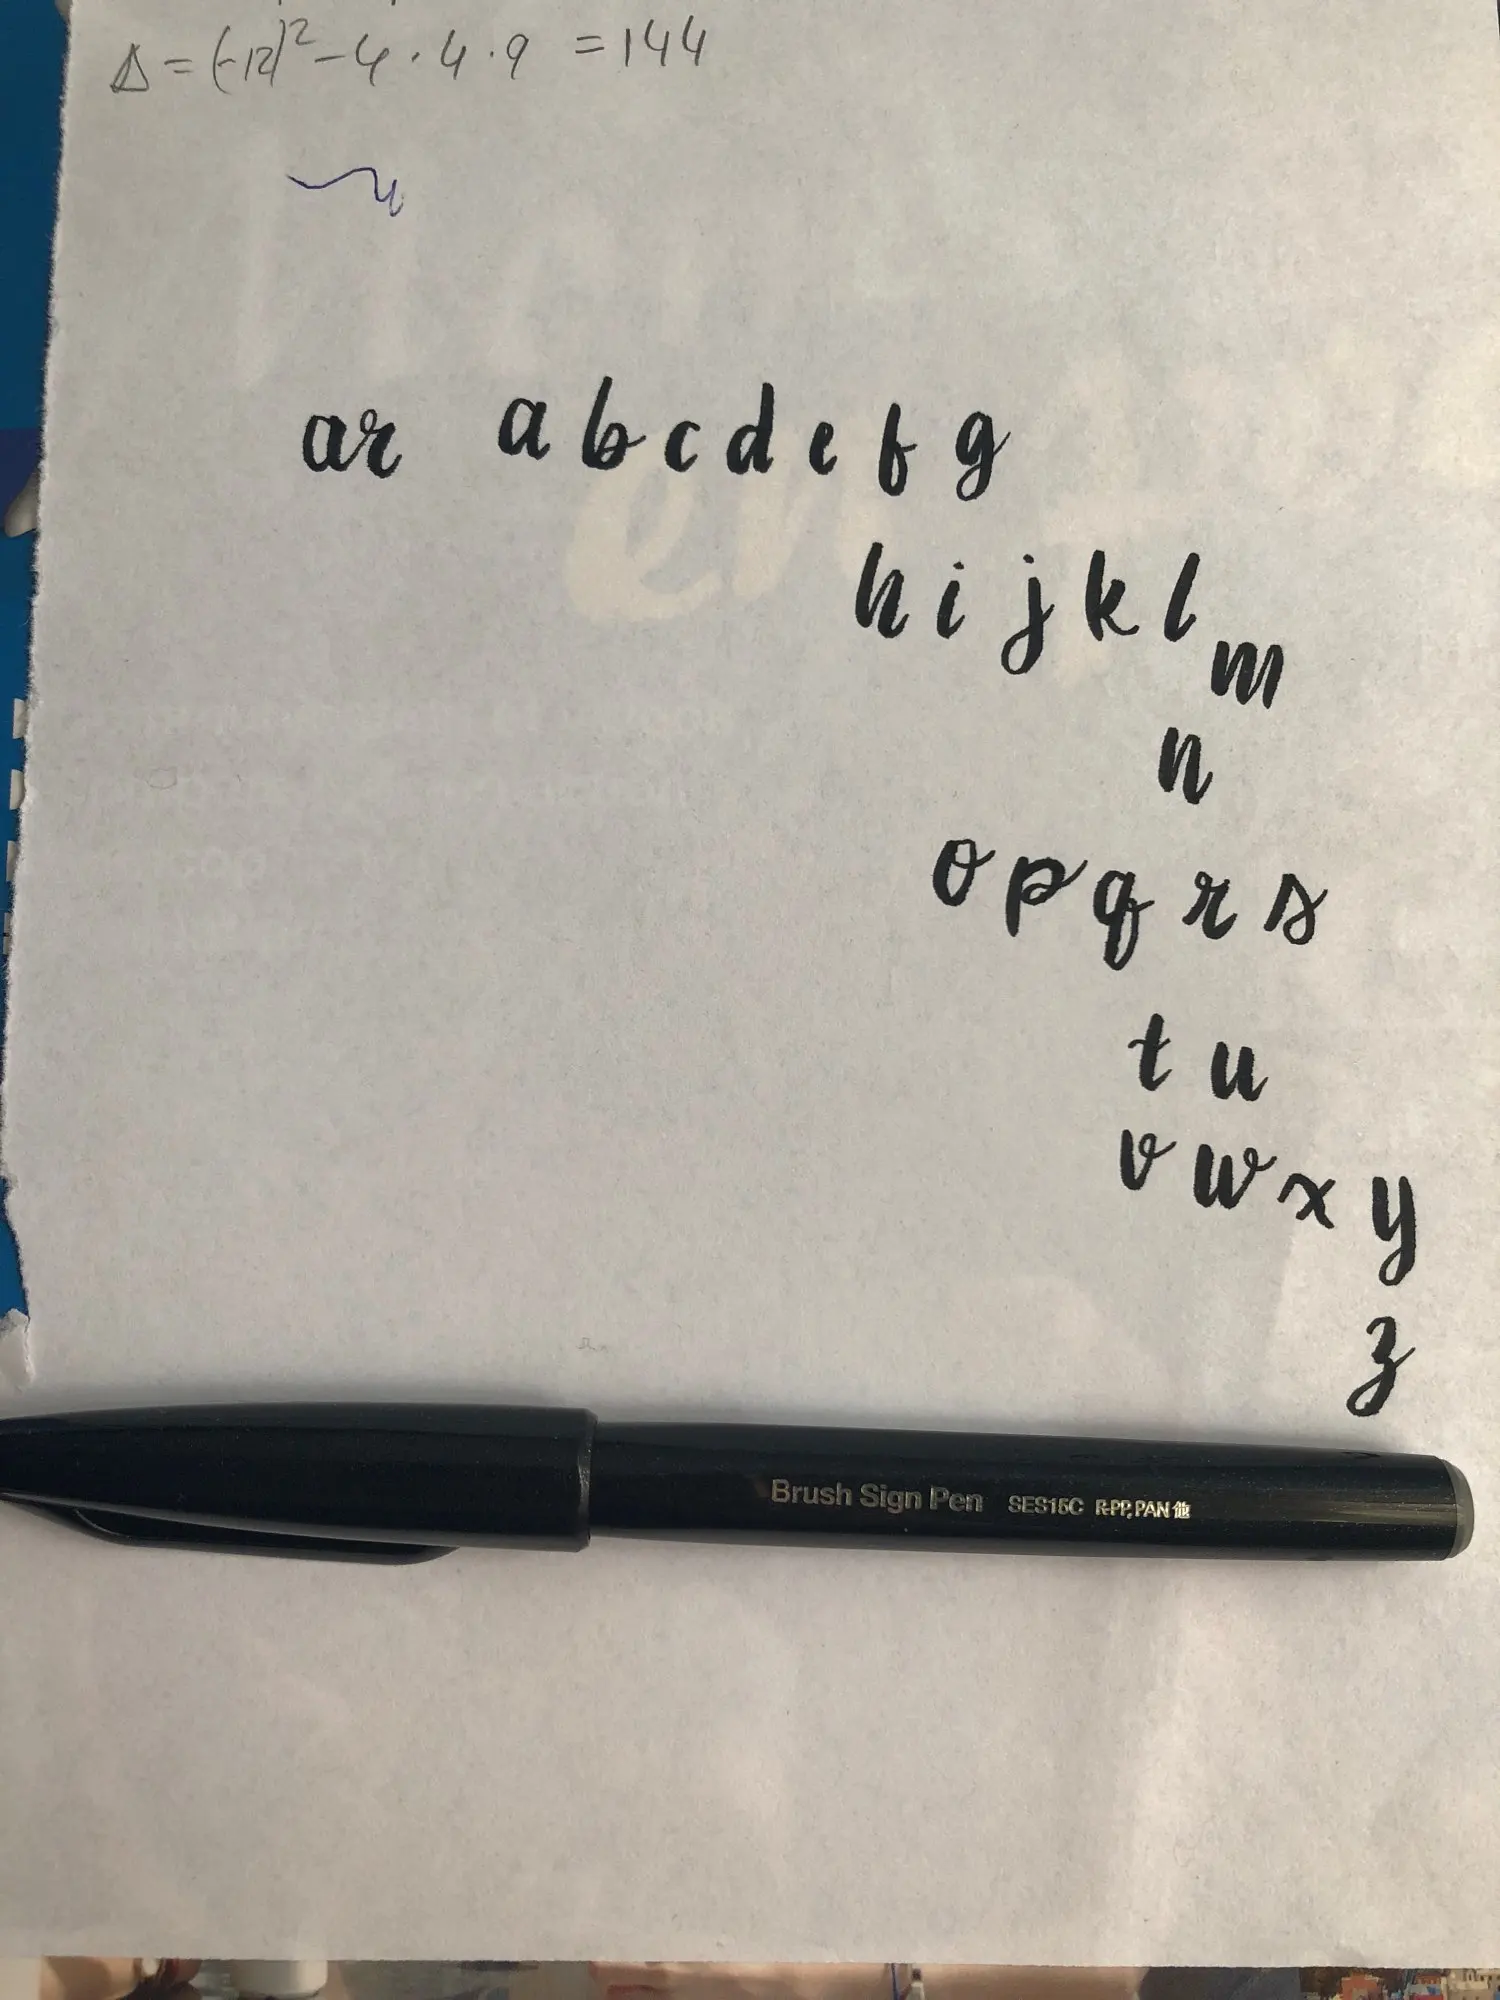 Δ = (-12)² - 4 · 4 · 9 = 144
ar a b c d e f g
h i j k l
m
n
o p q r s
t u
v w x y
z
Brush Sign Pen SES15C R-PP, PAN 他